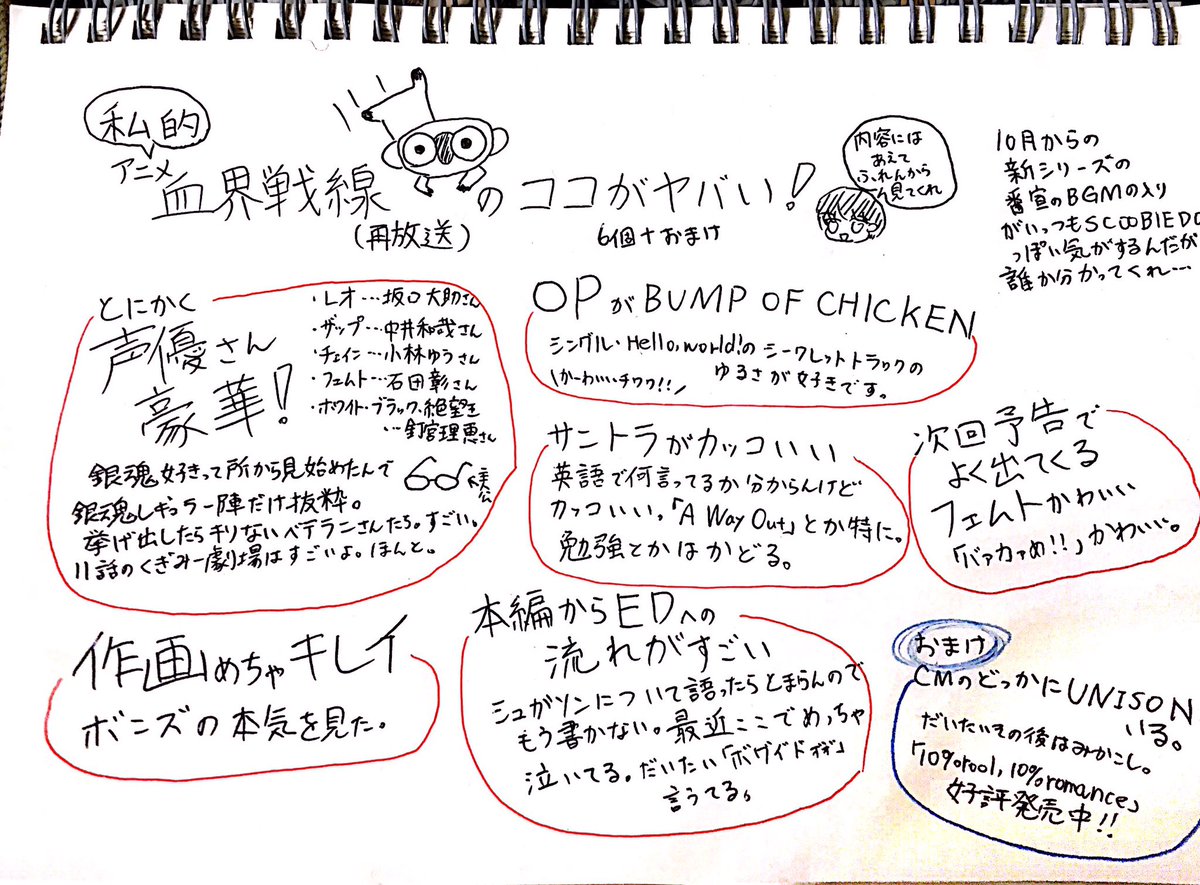 私的
アニメ
血界戦線のココがヤバい!
(再放送)
6個+おまけ
内容には
あえて
ふれんから
見てくれ
10月からの
新シリーズの
番宣のBGMの入り
がいっつもSCOOBIEDO
っぽい気がするんだが
誰か分かってくれ…
とにかく
声優さん
豪華!
・レオ…坂口大助さん
・ザップ…中井和哉さん
・チェイン…小林ゆうさん
・フェムト…石田彰さん
・ホワイト・ブラック、絶望王
…釘宮理恵さん
銀魂好きって所から見始めたんで
銀魂レギュラー陣だけ抜粋。
挙げ出したらキリないベテランさんたち。すごい。
11話のくぎみー劇場はすごいよ。ほんと。
OPがBUMP OF CHICKEN
シングル・Hello,world!のシークレットトラックの
ゆるさが好きです。
\かーわいいチワワ!!/
サントラがカッコいい
英語で何言ってるか分からんけど
カッコいい。「A Way Out」とか特に。
勉強とかはかどる。
次回予告で
よく出てくる
フェムトかわいい
「バァカァめ!!」かわいい。
作画めちゃキレイ
ボンズの本気を見た。
本編からEDへの
流れがすごい
シュガソンについて語ったらとまらんので
もう書かない。最近ここでめっちゃ
泣いてる。だいたい「ボヴイドオオ」
言うてる。
おまけ
CMのどっかにUNISON
いる。
だいたいその後はみかこし。
「10% roll, 10% romance」
好評発売中!!